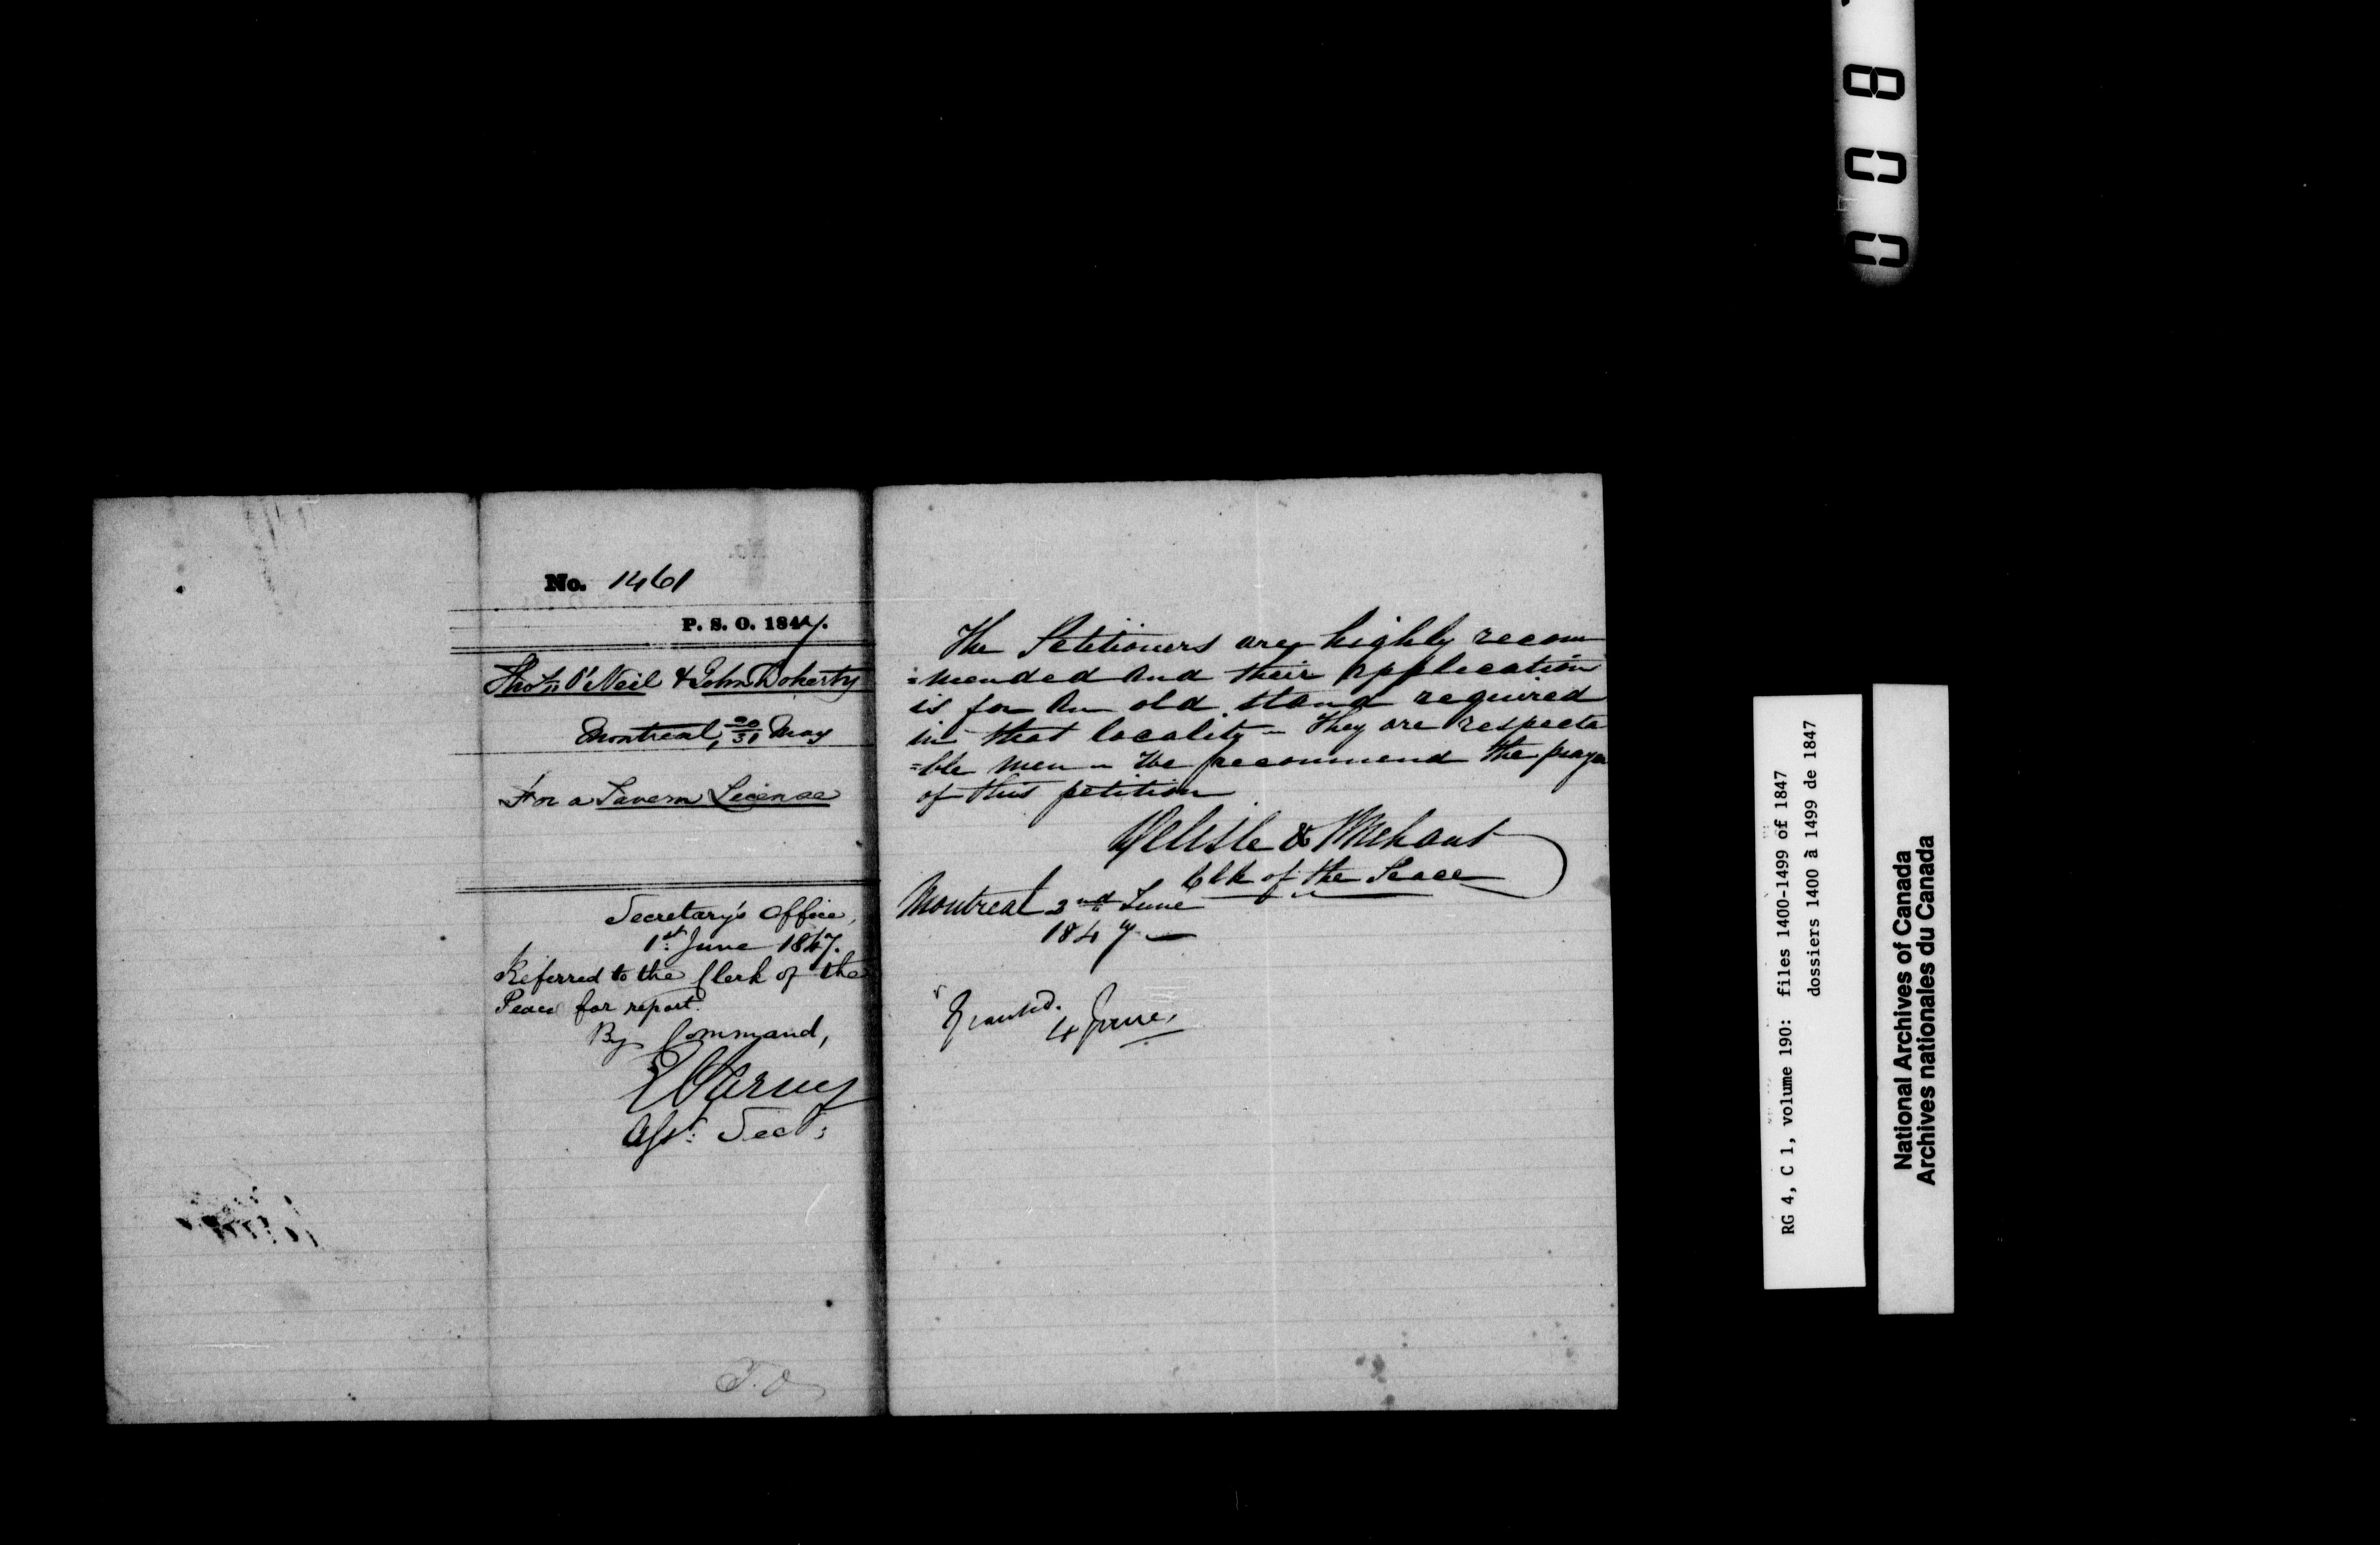 No. 1461
P. S. O. 1847.
Thos. O'Neil & John Doherty
Montreal, 20/31 May
For a Tavern License
Secretary's Office,
1st June 1847.
Referred to the Clerk of the
Peace for report.
By Command,
Asst. Secy.
The Petitioners are highly recom
=mended and their application
is for an old stand required
in that locality - They are respecta
=ble men - We recommend the prayer
of this petition
Delisle & Brehaut
Clk of the Peace
Montreal 2nd June
1847 —
Granted.
4 June,
RG 4, C 1, volume 190: files 1400-1499 of 1847
dossiers 1400 à 1499 de 1847
National Archives of Canada
Archives nationales du Canada
0 0 8